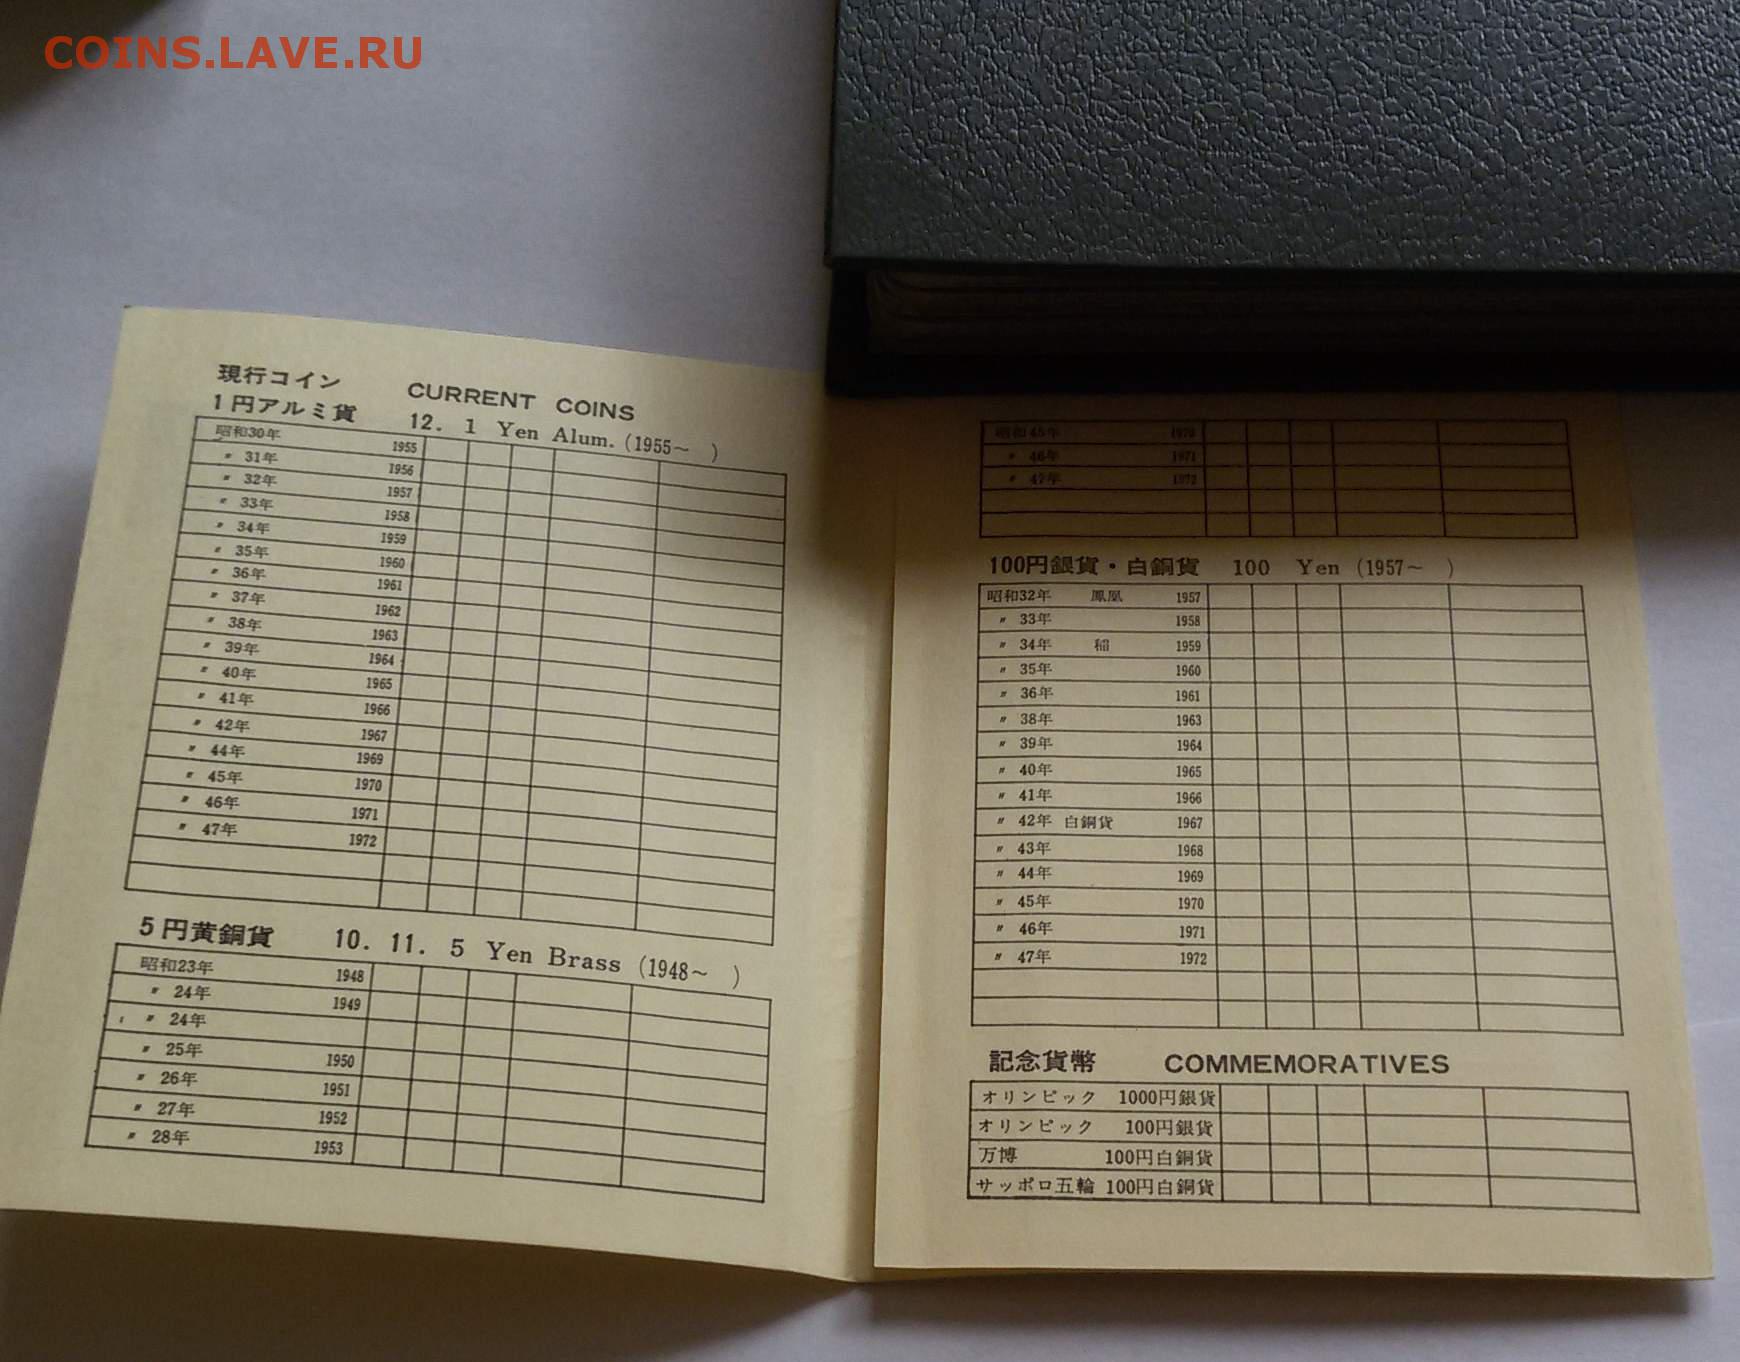 COINS.LAVE.RU
現行コイン CURRENT COINS
1円アルミ貨 12. 1 Yen Alum. (1955~ )
昭和30年 1955
〃 31年 1956
〃 32年 1957
〃 33年 1958
〃 34年 1959
〃 35年 1960
〃 36年 1961
〃 37年 1962
〃 38年 1963
〃 39年 1964
〃 40年 1965
〃 41年 1966
〃 42年 1967
〃 44年 1969
〃 45年 1970
〃 46年 1971
〃 47年 1972
5円黄銅貨 10. 11. 5 Yen Brass (1948~ )
昭和23年 1948
〃 24年 1949
〃 24年
〃 25年 1950
〃 26年 1951
〃 27年 1952
〃 28年 1953
昭和45年 1970
〃 46年 1971
〃 47年 1972
100円銀貨・白銅貨 100 Yen (1957~ )
昭和32年 鳳凰 1957
〃 33年 1958
〃 34年 稲 1959
〃 35年 1960
〃 36年 1961
〃 38年 1963
〃 39年 1964
〃 40年 1965
〃 41年 1966
〃 42年 白銅貨 1967
〃 43年 1968
〃 44年 1969
〃 45年 1970
〃 46年 1971
〃 47年 1972
記念貨幣 COMMEMORATIVES
オリンピック 1000円銀貨
オリンピック 100円銀貨
万博 100円白銅貨
サッポロ五輪 100円白銅貨